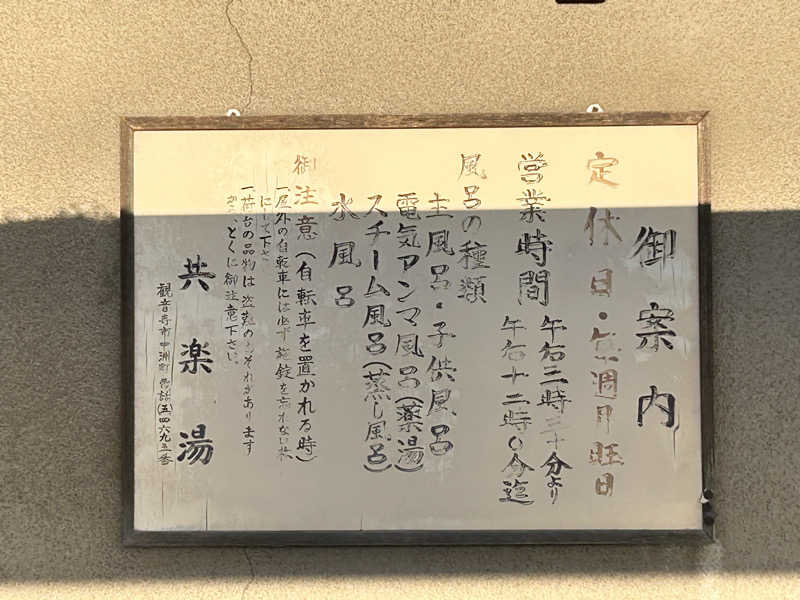 御案内
定休日・毎週月旺日
営業時間
午后三時三十分より
午后十二時〇分迄
風呂の種類
主風呂・子供風呂
電気アンマ風呂(薬湯)
スチーム風呂(蒸し風呂)
水風呂
御注意(自転車を置かれる時)
一、屋外の自転車には必ず施錠を忘れない様
にして下さい
一、荷台の品物は盗難のおそれがあります
から、とくに御注意下さい。
共楽湯
観音寺市中洲町 電話(五)四六九五番